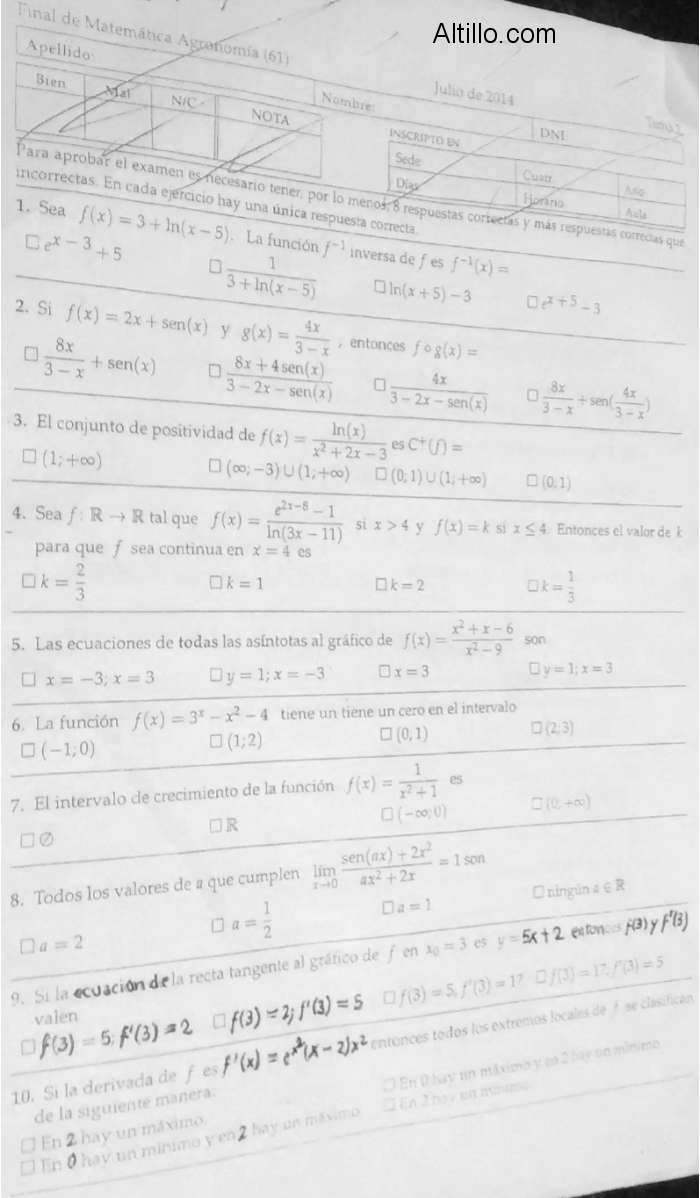 Altillo.com
Final de Matemática Agronomía (61)
Julio de 2014
Tema 2
Apellido:
Nombre:
DNI
Bien Mal N/C NOTA
INSCRIPTO EN
Sede Cuatr. Año
Días Horario Aula
Para aprobar el examen es necesario tener, por lo menos, 8 respuestas correctas y más respuestas correctas que
incorrectas. En cada ejercicio hay una única respuesta correcta.
1. Sea f(x) = 3 + ln(x − 5). La función f⁻¹ inversa de f es f⁻¹(x) =
☐ e^(x − 3) + 5 ☐ 1/(3 + ln(x − 5)) ☐ ln(x + 5) − 3 ☐ e^(x + 5) − 3
2. Si f(x) = 2x + sen(x) y g(x) = 4x/(3 − x), entonces f∘g(x) =
☐ 8x/(3 − x) + sen(x) ☐ (8x + 4sen(x))/(3 − 2x − sen(x)) ☐ 4x/(3 − 2x − sen(x)) ☐ 8x/(3 − x) + sen(4x/(3 − x))
3. El conjunto de positividad de f(x) = ln(x)/(x² + 2x − 3) es C⁺(f) =
☐ (1; +∞) ☐ (∞; −3) ∪ (1; +∞) ☐ (0; 1) ∪ (1; +∞) ☐ (0; 1)
4. Sea f: ℝ → ℝ tal que f(x) = (e^(2x−8) − 1)/ln(3x − 11) si x > 4 y f(x) = k si x ≤ 4. Entonces el valor de k
para que f sea continua en x = 4 es
☐ k = 2/3 ☐ k = 1 ☐ k = 2 ☐ k = 1/3
5. Las ecuaciones de todas las asíntotas al gráfico de f(x) = (x² + x − 6)/(x² − 9) son
☐ x = −3; x = 3 ☐ y = 1; x = −3 ☐ x = 3 ☐ y = 1; x = 3
6. La función f(x) = 3ˣ − x² − 4 tiene un tiene un cero en el intervalo
☐ (−1; 0) ☐ (1; 2) ☐ (0, 1) ☐ (2; 3)
7. El intervalo de crecimiento de la función f(x) = 1/(x² + 1) es
☐ ∅ ☐ ℝ ☐ (−∞; 0) ☐ (0; +∞)
8. Todos los valores de a que cumplen lím x→0 (sen(ax) + 2x²)/(ax² + 2x) = 1 son
☐ a = 2 ☐ a = 1/2 ☐ a = 1 ☐ ningún a ∈ ℝ
9. Si la ecuación de la recta tangente al gráfico de f en x₀ = 3 es y = 5x + 2 entonces f(3) y f'(3)
valen
☐ f(3) = 5; f'(3) = 2 ☐ f(3) = 2; f'(3) = 5 ☐ f(3) = 5, f'(3) = 17 ☐ f(3) = 17; f'(3) = 5
10. Si la derivada de f es f'(x) = e^(x²)(x − 2)x² entonces todos los extremos locales de f se clasifican
de la siguiente manera.
☐ En 2 hay un máximo. ☐ En 0 hay un máximo y en 2 hay un mínimo
☐ En 0 hay un mínimo y en 2 hay un máximo ☐ En 2 hay un mínimo.